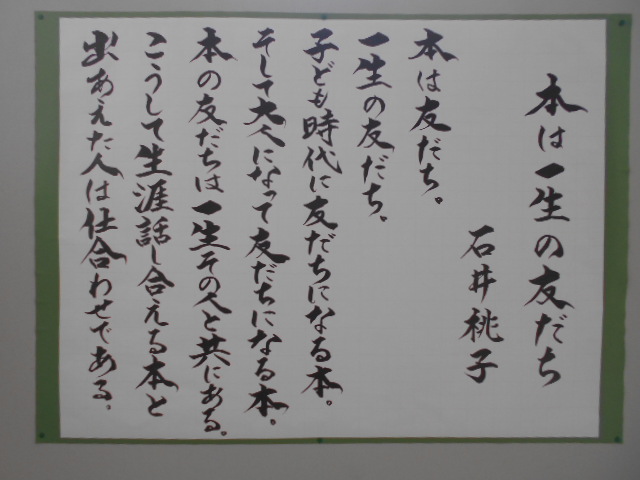 本は一生の友だち
石井桃子
本は友だち。
一生の友だち。
子ども時代に友だちになる本。
そして大人になって友だちになる本。
本の友だちは一生その人と共にある。
こうして生涯話し合える本と
出あえた人は仕合わせである。